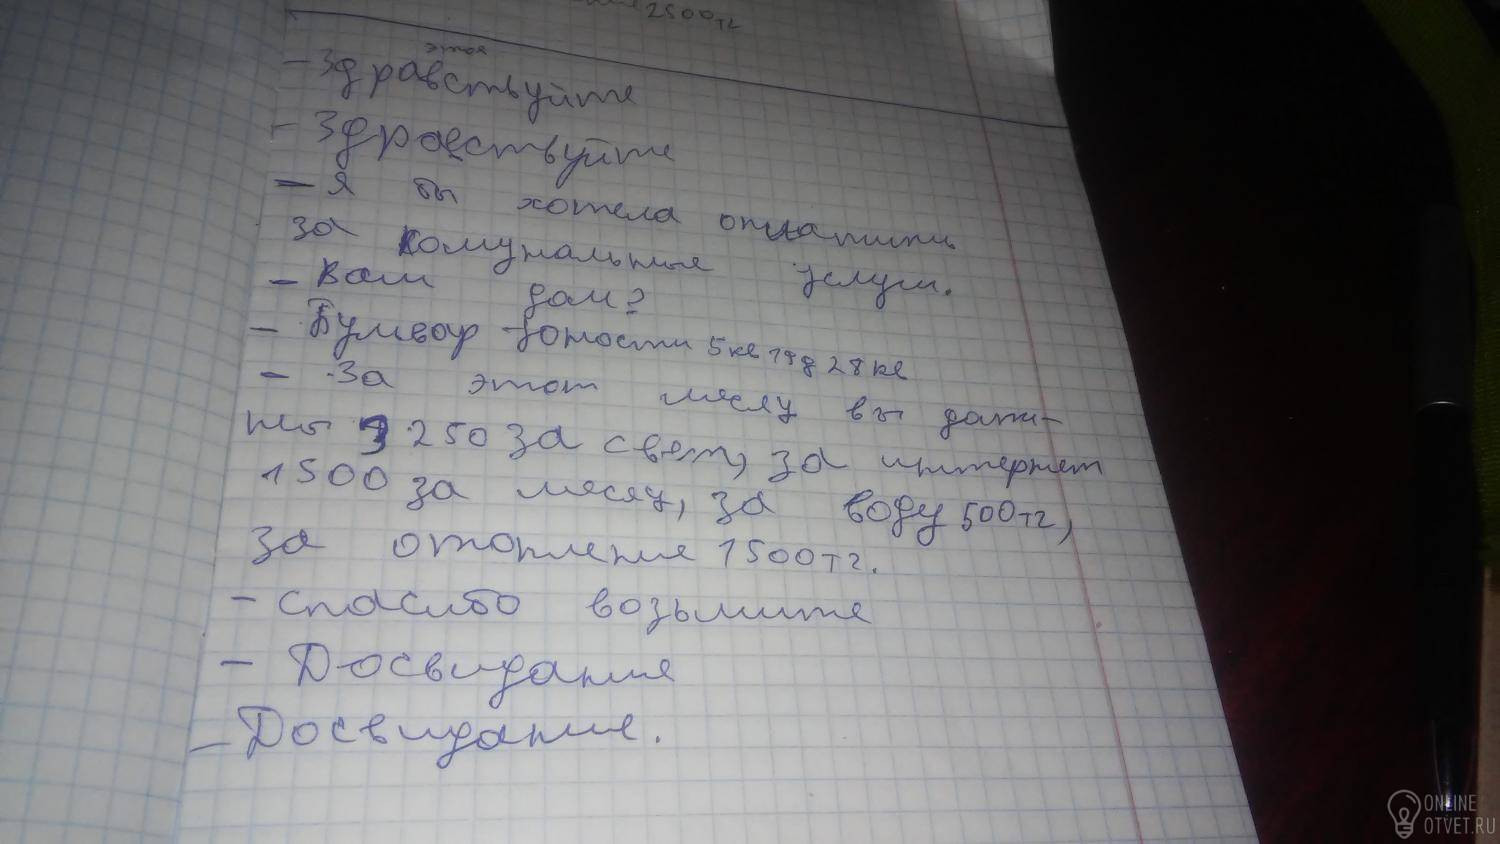 2500тг
этоя
- Здравствуйте
- Здравствуйте
- Я бы хотела оплатить
за комунальные услуги.
- Ваш дом?
- Бульвар Юности 5кв 19д 28кв
- За этот месяц вы долж-
ны 3250 за свет, за интернет
1500 за месяц, за воду 500тг,
за отопление 1500тг.
- спасибо возьмите
- Досвидания
- Досвидание.
ONLINE
OTVET.RU